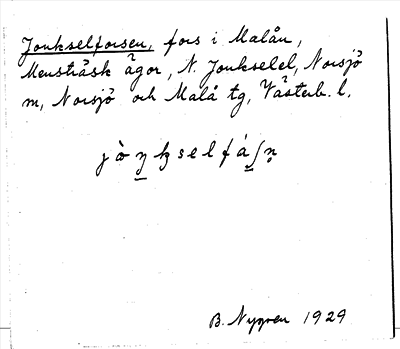 Jonkselforsen, fors i Malån,
Mensträsk ägor, N. Jonkselel, Norsjö
m, Norsjö och Malå tg, Västerb. l.
B. Nygren 1929